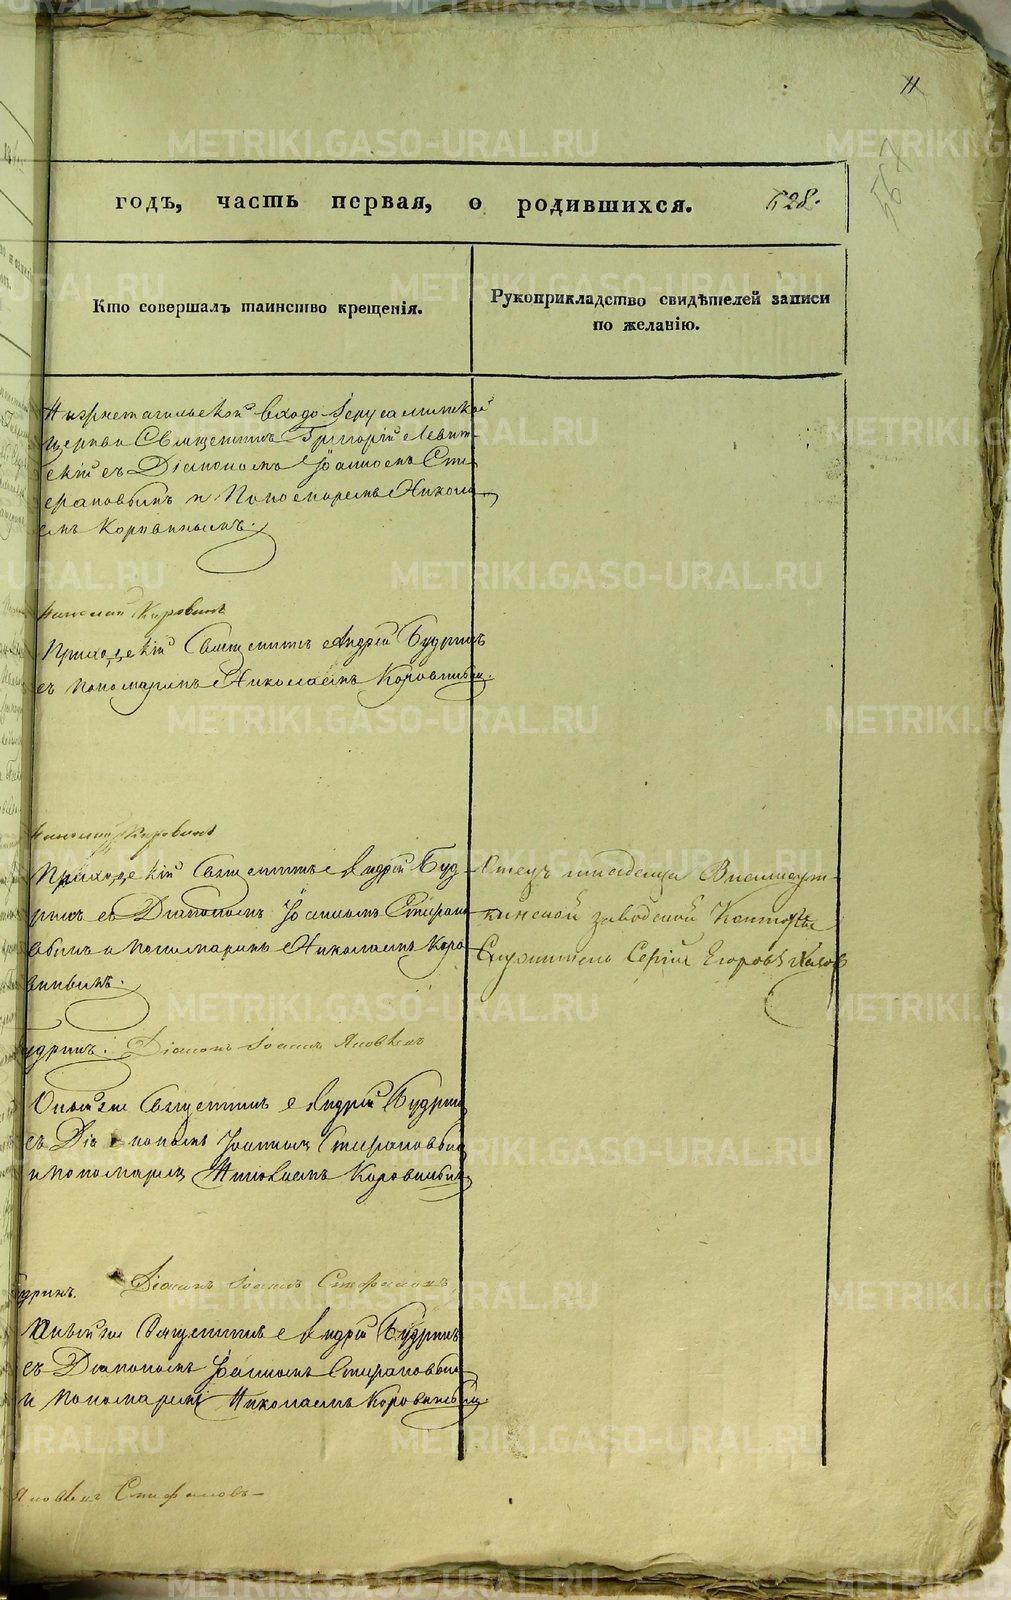 11
567
годъ, часть первая, о родившихся. 528.
Кто совершалъ таинство крещенія.
Рукоприкладство свидѣтелей записи
по желанію.
Нижнетагильской Входо-Іерусалимской
церкви Священникъ Григорій Левит-
скій съ Діакономъ Іоанномъ Сте-
фановымъ и Пономаремъ Никола-
емъ Коровинымъ.
Николай Коровинъ
Приходскій Священникъ Андрей Будринъ
съ пономаремъ Николаемъ Коровинымъ.
Николай Коровинъ
Приходскій Священникъ Андрей Буд-
ринъ съ Діакономъ Іоанномъ Стефано-
вымъ и пономаремъ Николаемъ Коро-
винымъ.
Отецъ младенца Висимоут-
кинской заводской Конторы
Служитель Сергій Егоровъ
Будринъ. Діаконъ Іоаннъ Яковлевъ
Оный же Священникъ Андрей Будринъ
съ Діакономъ Іоанномъ Стефановымъ
и пономаремъ Николаемъ Коровинымъ
Будринъ. Діаконъ Іоаннъ Стефановъ
Оный же Священникъ Андрей Будринъ
съ Діакономъ Іоанномъ Стефановымъ
и пономаремъ Николаемъ Коровинымъ
Яковлевъ Стефановъ
METRIKI.GASO-URAL.RU